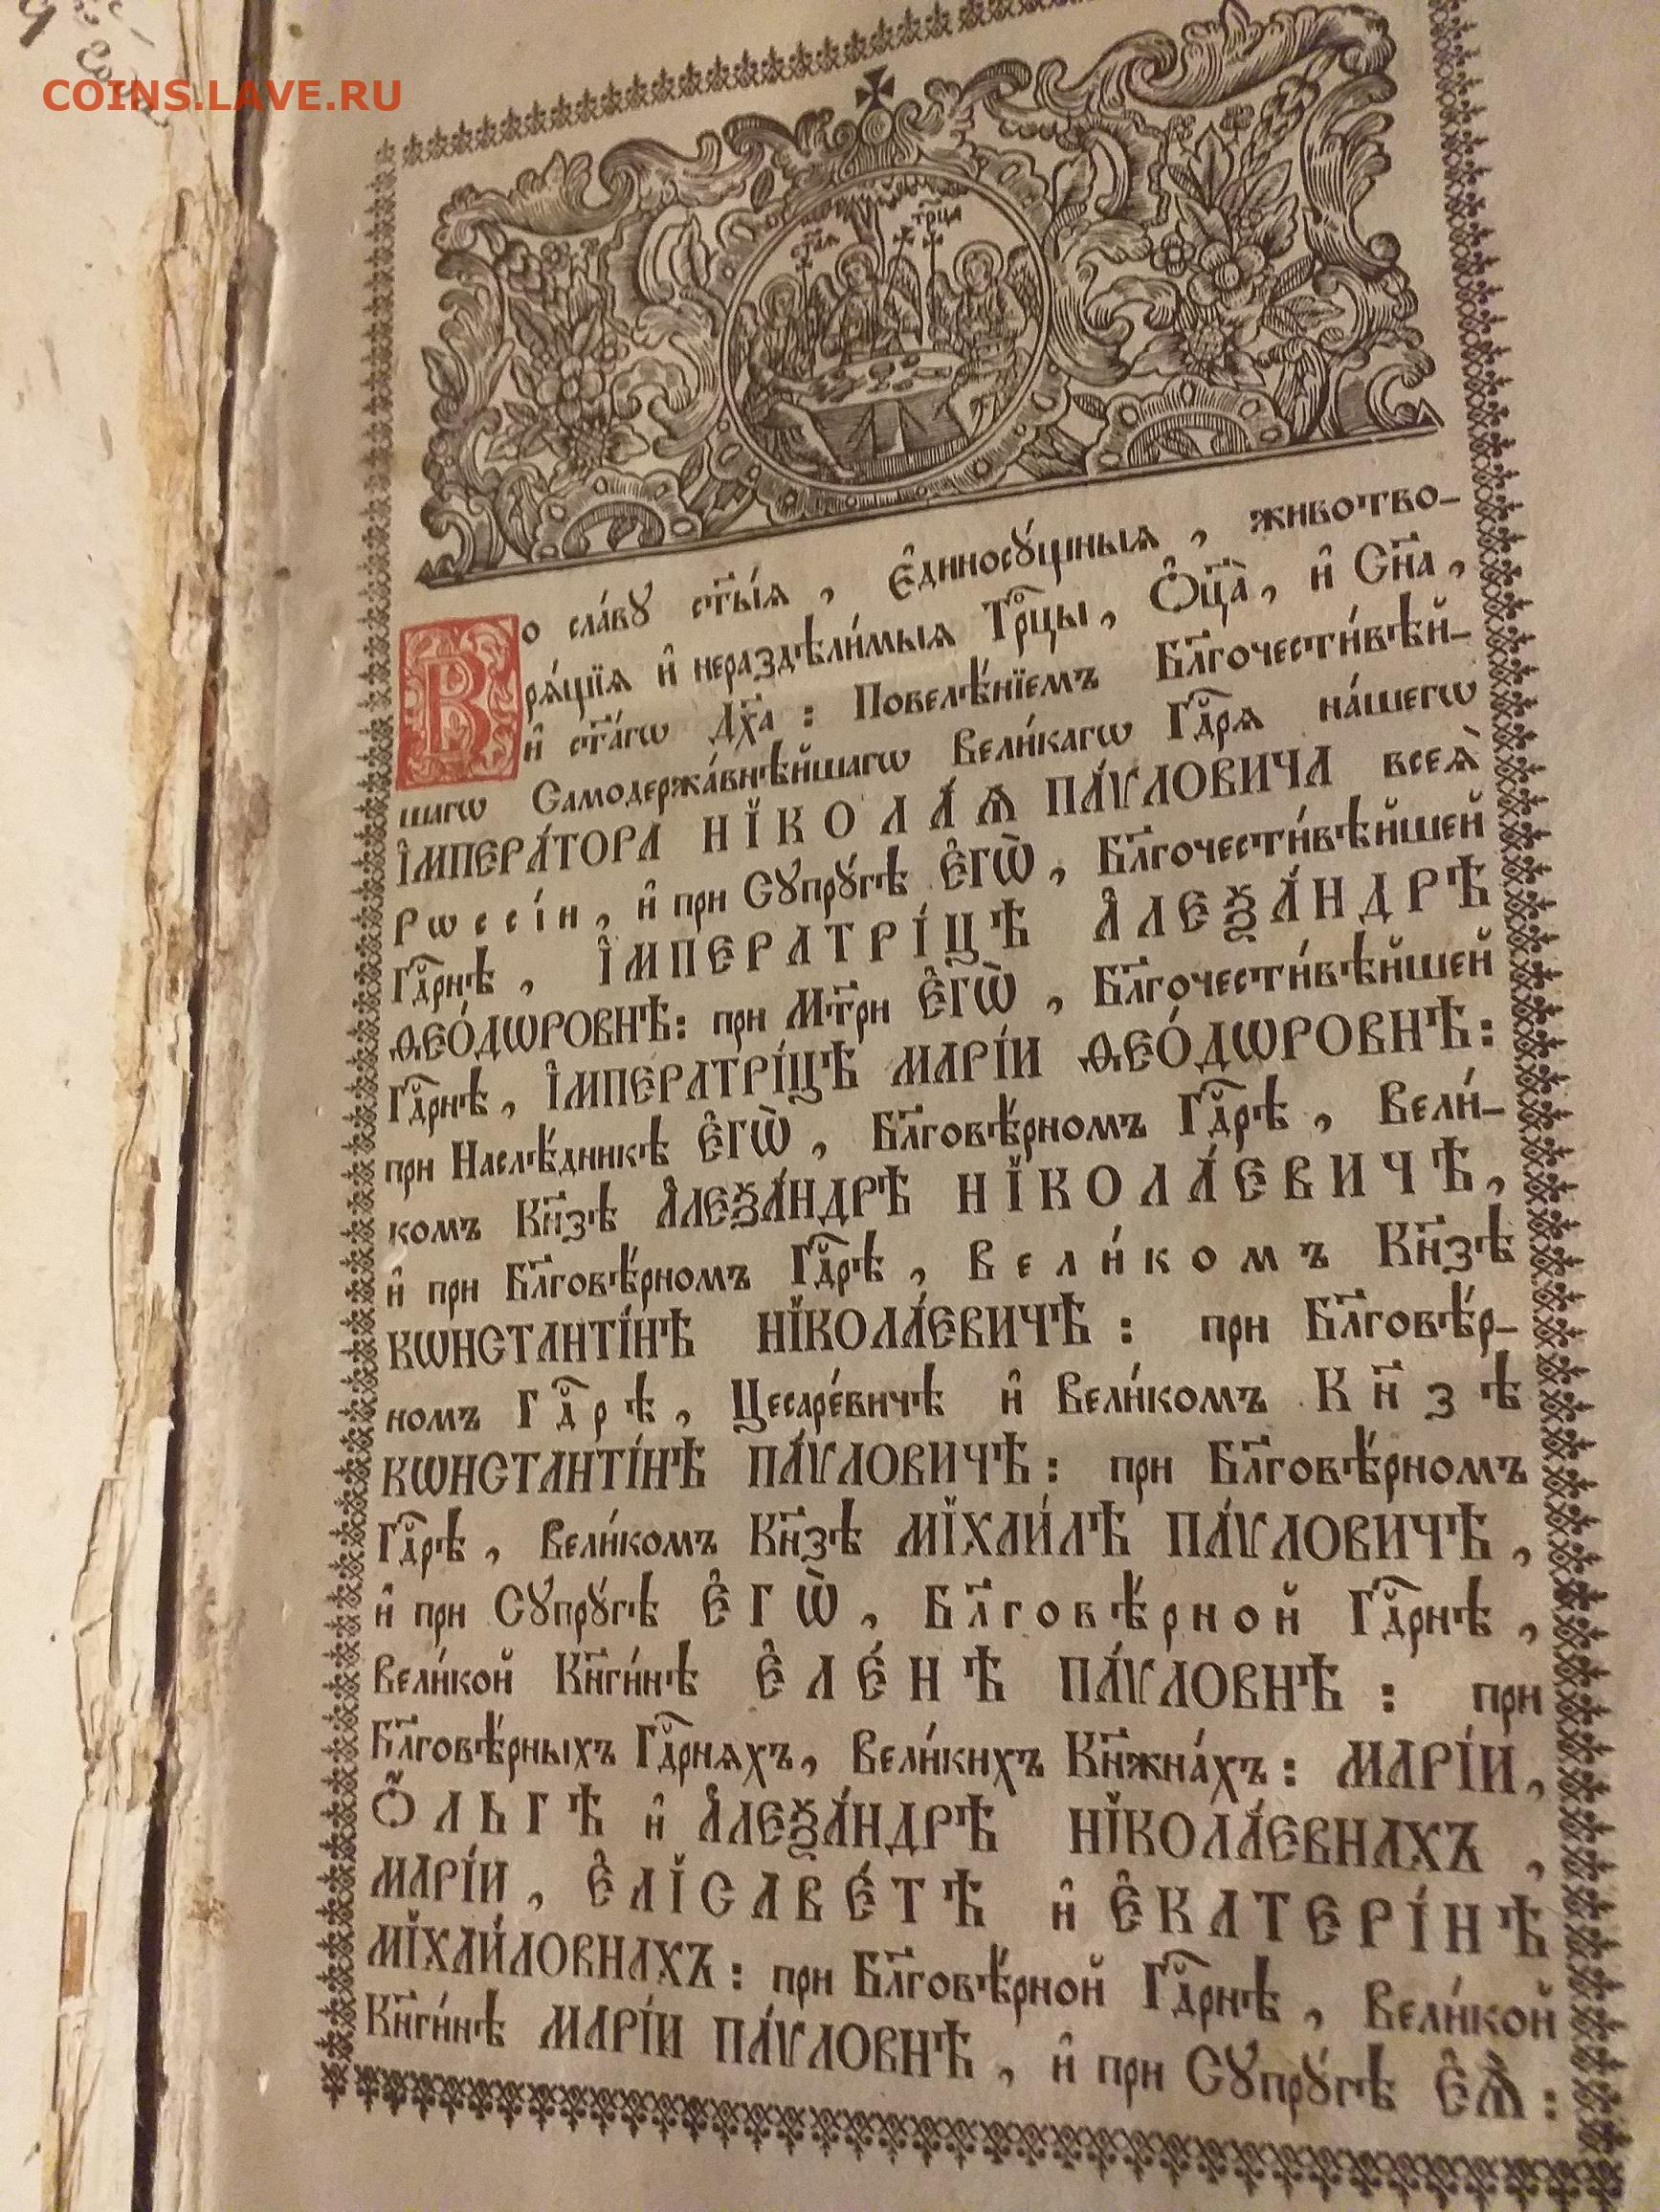 COINS.LAVE.RU
ст҃ая трⷪ҇ца
Во сла́вꙋ ст҃ы́ѧ, є҆диносꙋ́щныѧ, животво-
рѧ́щїѧ и҆ нераздѣли́мыѧ Трⷪ҇цы, Ѻ҆ц҃а̀, и҆ Сн҃а,
и҆ ст҃а́гѡ Дх҃а : Повелѣ́нїемъ Бл҃гочести́вѣй-
шагѡ Самодержа́внѣйшагѡ Вели́кагѡ Гдⷭ҇рѧ на́шегѡ
І҆МПЕРА́ТОРА НЇКОЛА́Ѧ ПА́ѴЛОВИЧА всеѧ̀
Рѡссі́и, и҆ при Сꙋпрꙋ́гѣ Є҆ГѠ̀, Бл҃гочести́вѣйшей
Гдⷭ҇рнѣ, І҆МПЕРАТРІ́ЦѢ А҆ЛЕѮА́НДРѢ
ѲЕО́ДѠРОВНѢ: при Мт҃ри Є҆ГѠ̀, Бл҃гочести́вѣйшей
Гдⷭ҇рнѣ, І҆МПЕРАТРІ́ЦѢ МАРІ́И ѲЕО́ДѠРОВНѢ:
при Наслѣ́дникѣ Є҆ГѠ̀, Бл҃говѣ́рномъ Гдⷭ҇рѣ, Вели́-
комъ Кн҃зѣ А҆ЛЕѮА́НДРѢ НЇКОЛА́ЕВИЧѢ,
и҆ при Бл҃говѣ́рномъ Гдⷭ҇рѣ, Вели́комъ Кн҃зѣ
КѠНСТАНТІ́НѢ НЇКОЛА́ЕВИЧѢ : при Бл҃говѣ́р-
номъ Гдⷭ҇рѣ, Цесаре́вичѣ и҆ Вели́комъ Кн҃зѣ
КѠНСТАНТІ́НѢ ПА́ѴЛОВИЧѢ: при Бл҃говѣ́рномъ
Гдⷭ҇рѣ, Вели́комъ Кн҃зѣ МЇХАИ́ЛѢ ПА́ѴЛОВИЧѢ,
и҆ при Сꙋпрꙋ́гѣ Є҆ГѠ̀, Бл҃говѣ́рной Гдⷭ҇рнѣ,
Вели́кой Кн҃ги́нѣ Є҆ЛЕ́НѢ ПА́ѴЛОВНѢ : при
Бл҃говѣ́рныхъ Гдⷭ҇рнѧхъ, Вели́кихъ Кн҃жна́хъ: МАРІ́И,
Ѻ҆́ЛЬГѢ и҆ А҆ЛЕѮА́НДРѢ НЇКОЛА́ЕВНАХЪ,
МАРІ́И, Є҆ЛЇСАВЕ́ТѢ и҆ Є҆КАТЕРІ́НѢ
МЇХАИ́ЛОВНАХЪ: при Бл҃говѣ́рной Гдⷭ҇рнѣ, Вели́кой
Кн҃ги́нѣ МАРІ́И ПА́ѴЛОВНѢ, и҆ при Сꙋпрꙋ́гѣ Є҆Ѧ̀ :